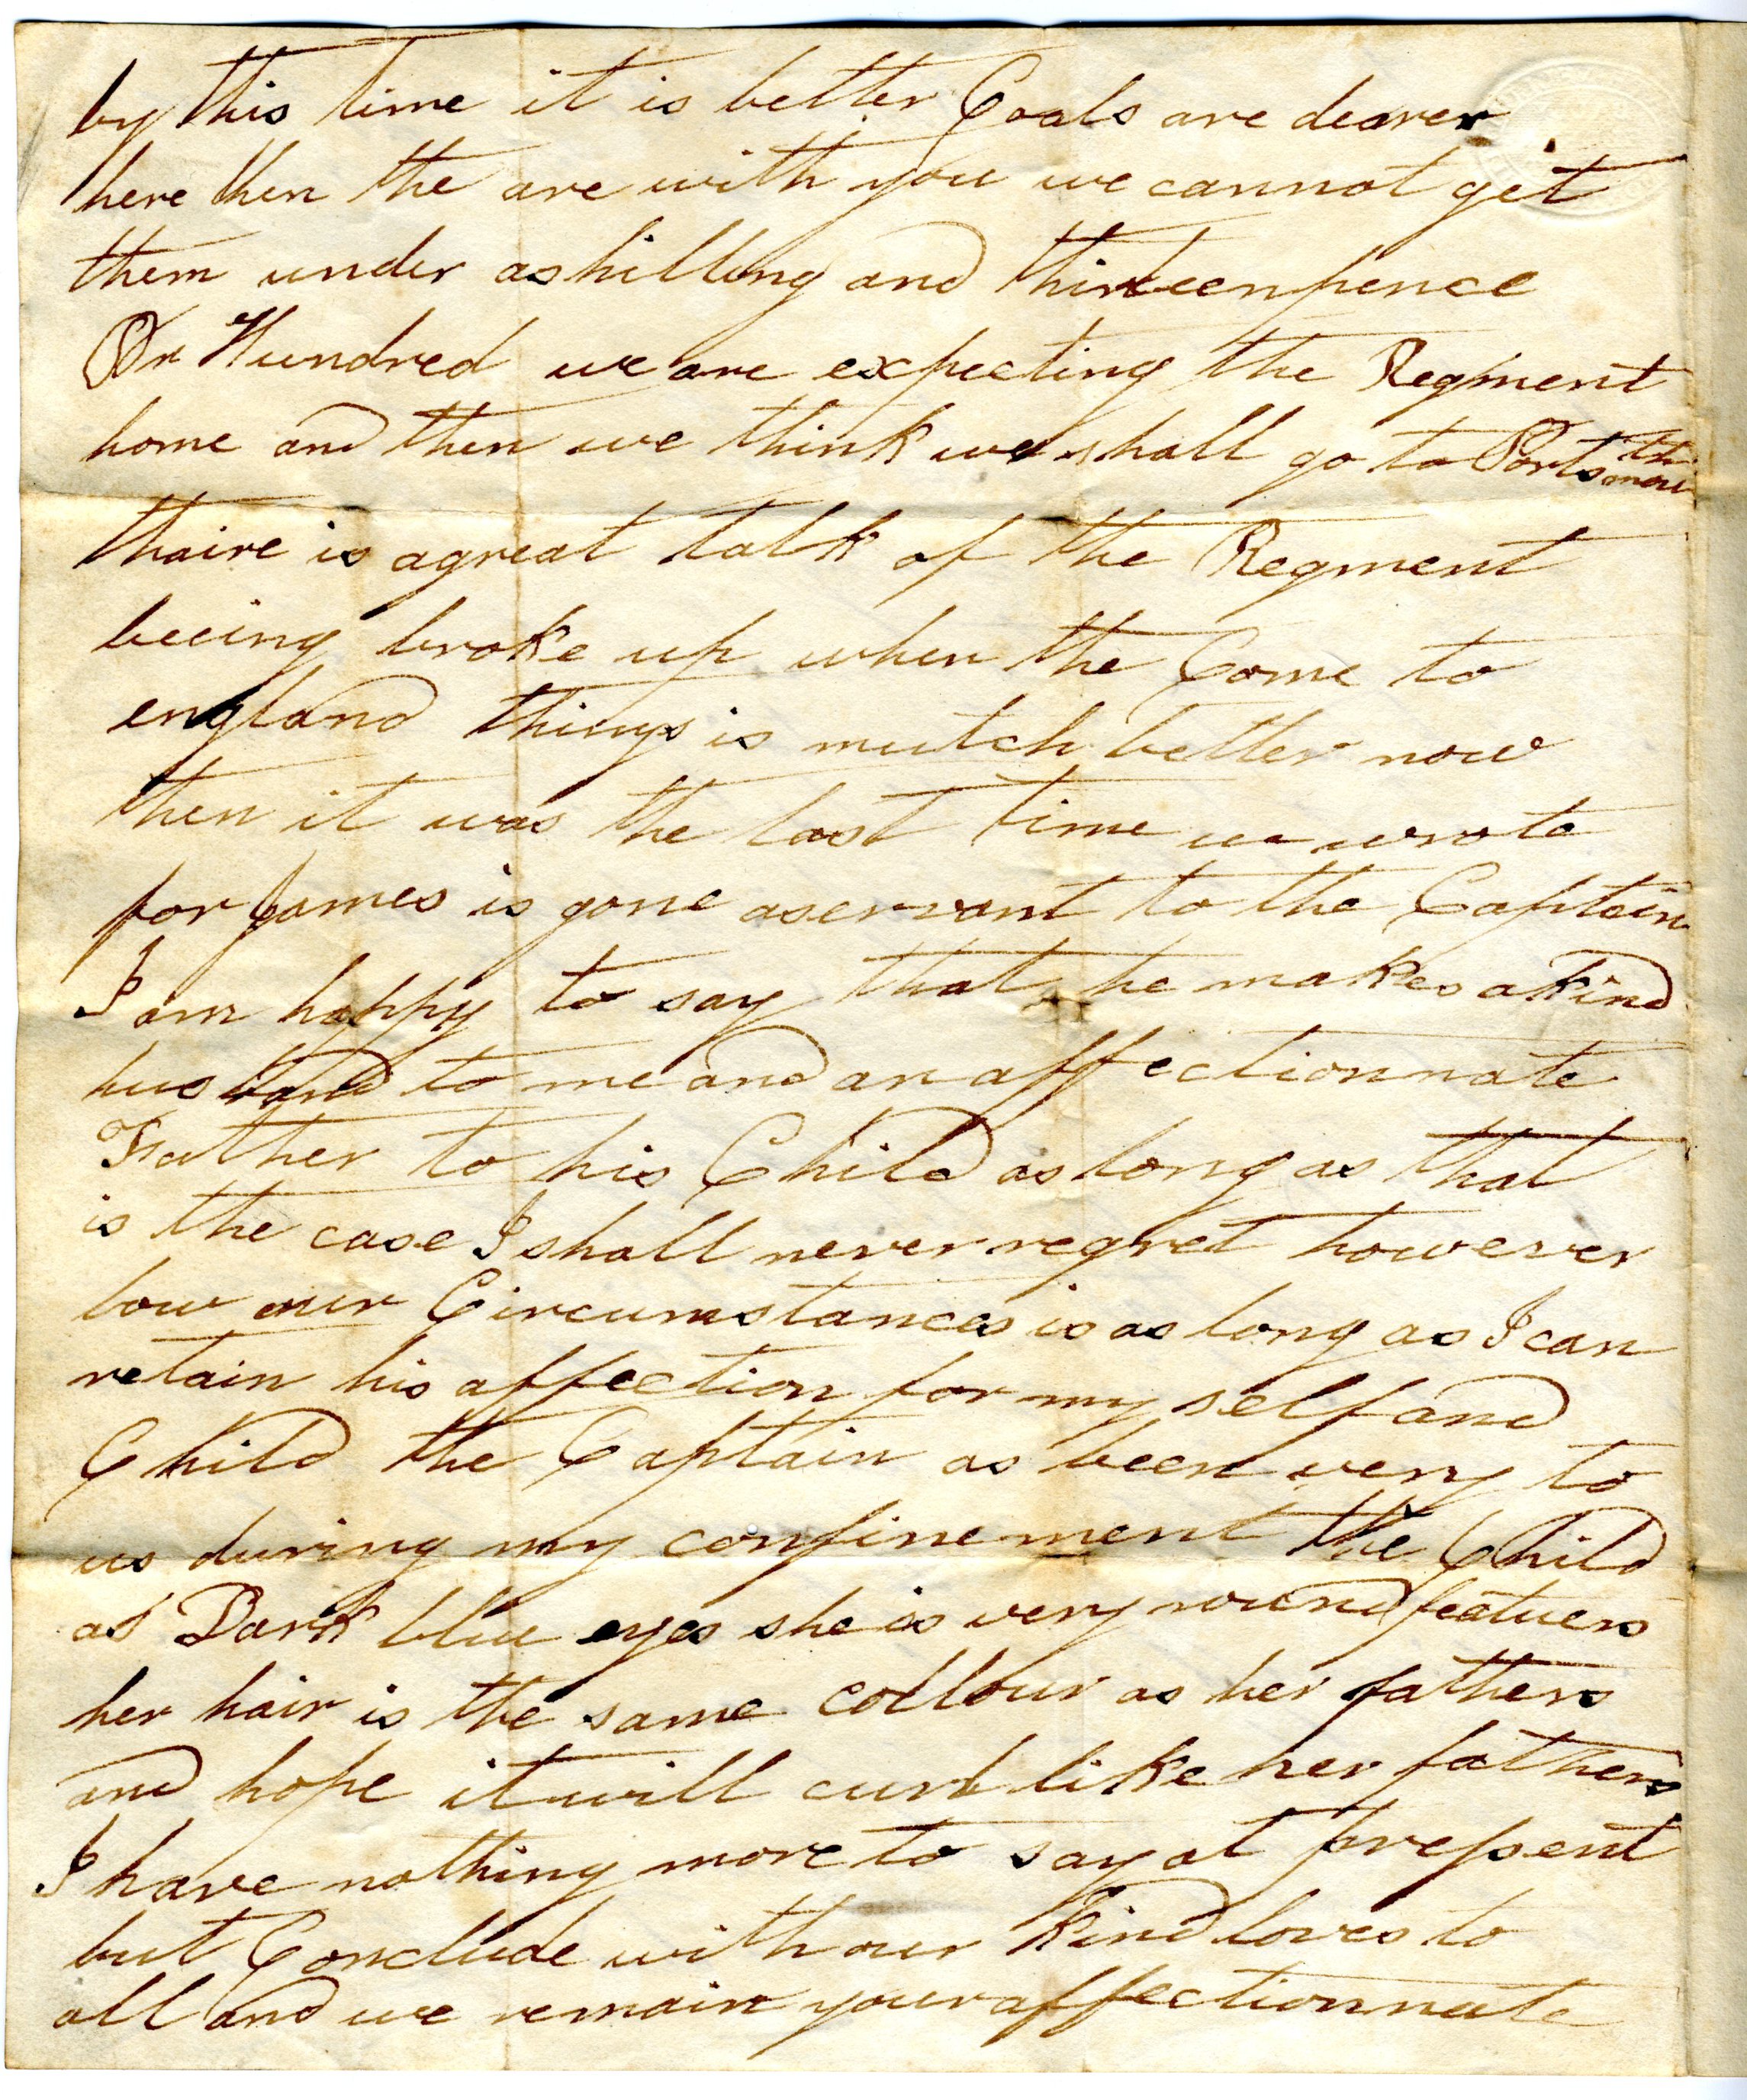 by this time it is better Coals are dearer
here then the are with you we cannot get
them under ashilling and thirteenpence
Pr Hundred we are expecting the Regment
home and then we think we shall go to Portsmouth
thaire is agreat talk of the Regment
beeing broke up when the Come to
england things is mutch better now
then it was the last time we wrote
for James is gone aservant to the Captain
I am happy to say that he makes akind
husband to me and an affectionnate
Father to his Child as long as that
is the case I shall never regret however
low our Circumstances is as long as I can
retain his affection for my self and
Child the Captain as been very to
us during my confinement the Child
as Dark blue eyes she is very round featuers
her hair is the same collour as her fathers
and hope it will curl like her fathers
I have nothing more to say at pressent
but Conclude with our kind loves to
all and we remain your affectionnate